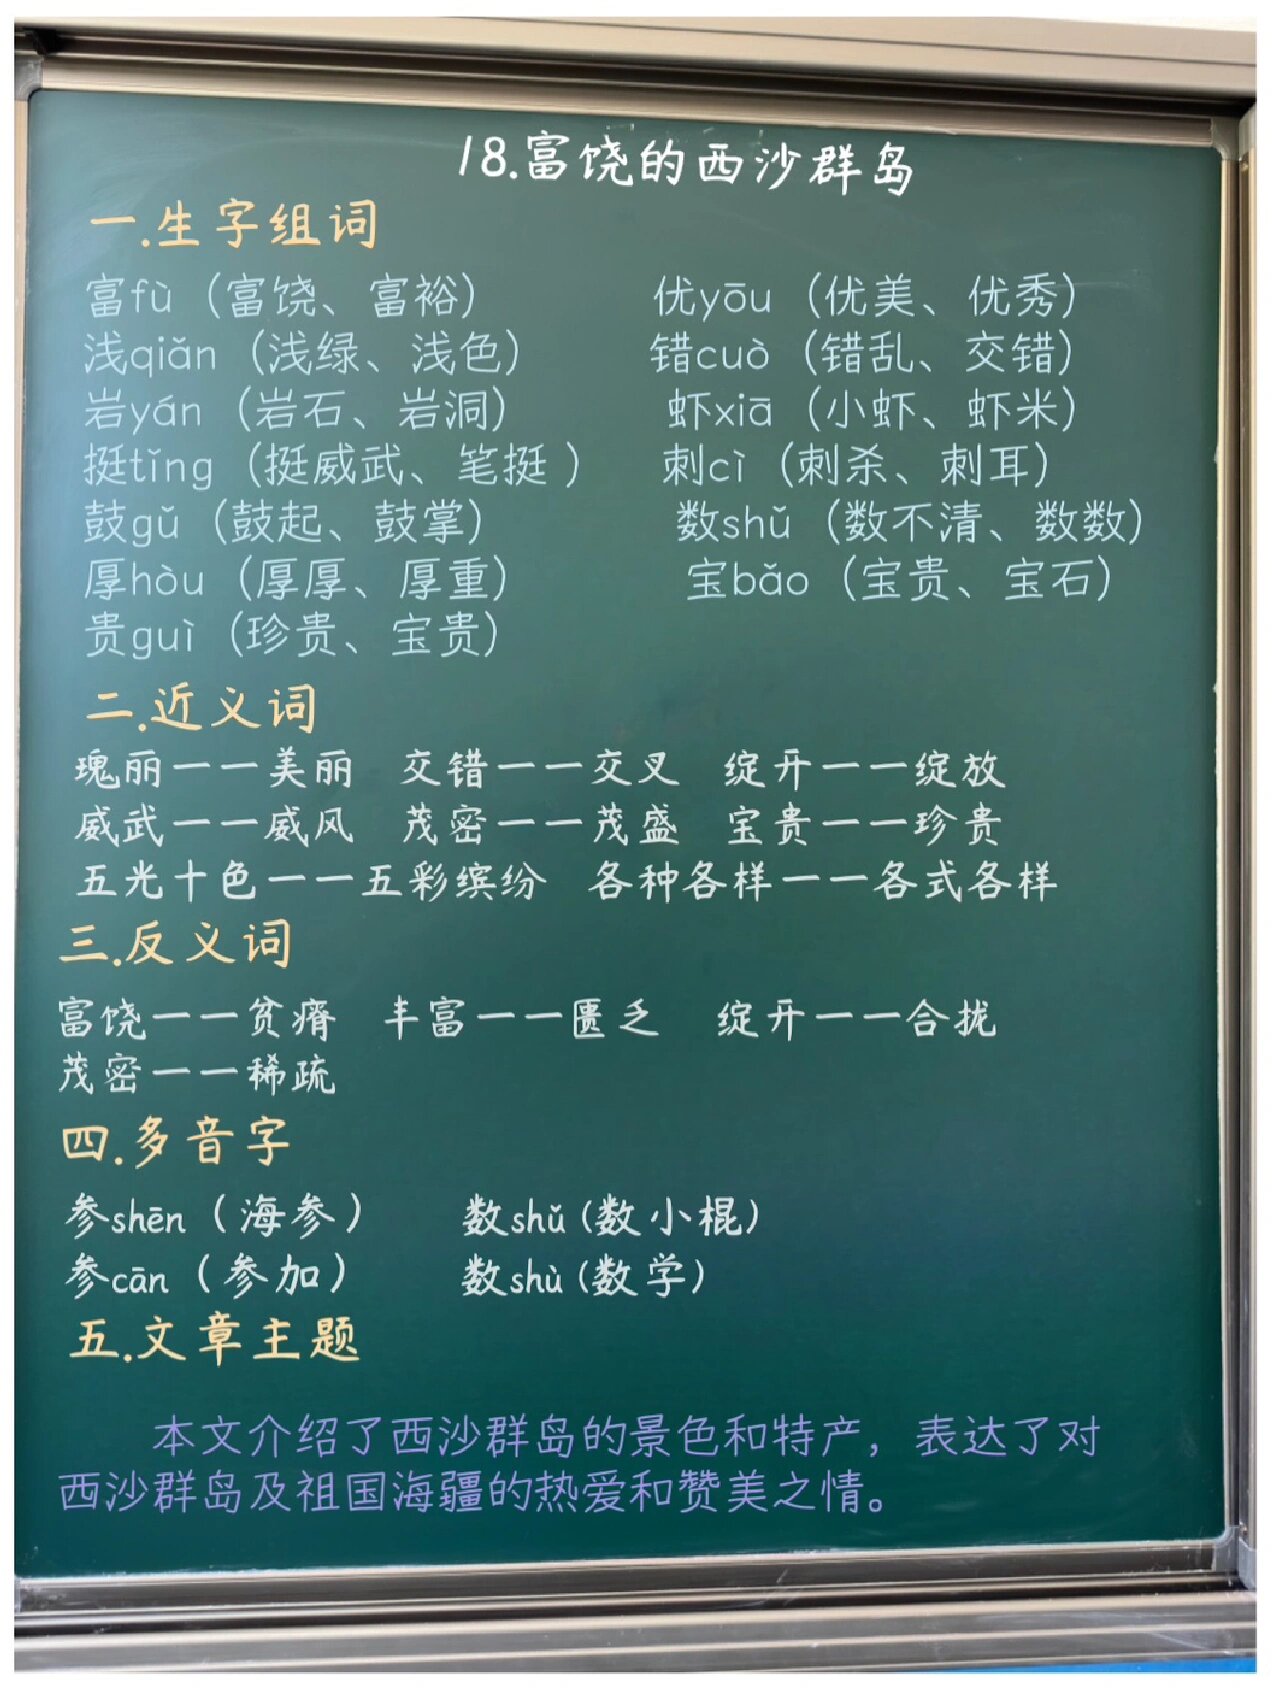 18.富饶的西沙群岛
一.生字组词
富fù（富饶、富裕） 优yōu（优美、优秀）
浅qiǎn（浅绿、浅色） 错cuò（错乱、交错）
岩yán（岩石、岩洞） 虾xiā（小虾、虾米）
挺tǐng（挺威武、笔挺） 刺cì（刺杀、刺耳）
鼓gǔ（鼓起、鼓掌） 数shǔ（数不清、数数）
厚hòu（厚厚、厚重） 宝bǎo（宝贵、宝石）
贵guì（珍贵、宝贵）
二.近义词
瑰丽——美丽 交错——交叉 绽开——绽放
威武——威风 茂密——茂盛 宝贵——珍贵
五光十色——五彩缤纷 各种各样——各式各样
三.反义词
富饶——贫瘠 丰富——匮乏 绽开——合拢
茂密——稀疏
四.多音字
参shēn（海参） 数shǔ(数小棍)
参cān（参加） 数shù(数学)
五.文章主题
本文介绍了西沙群岛的景色和特产，表达了对
西沙群岛及祖国海疆的热爱和赞美之情。